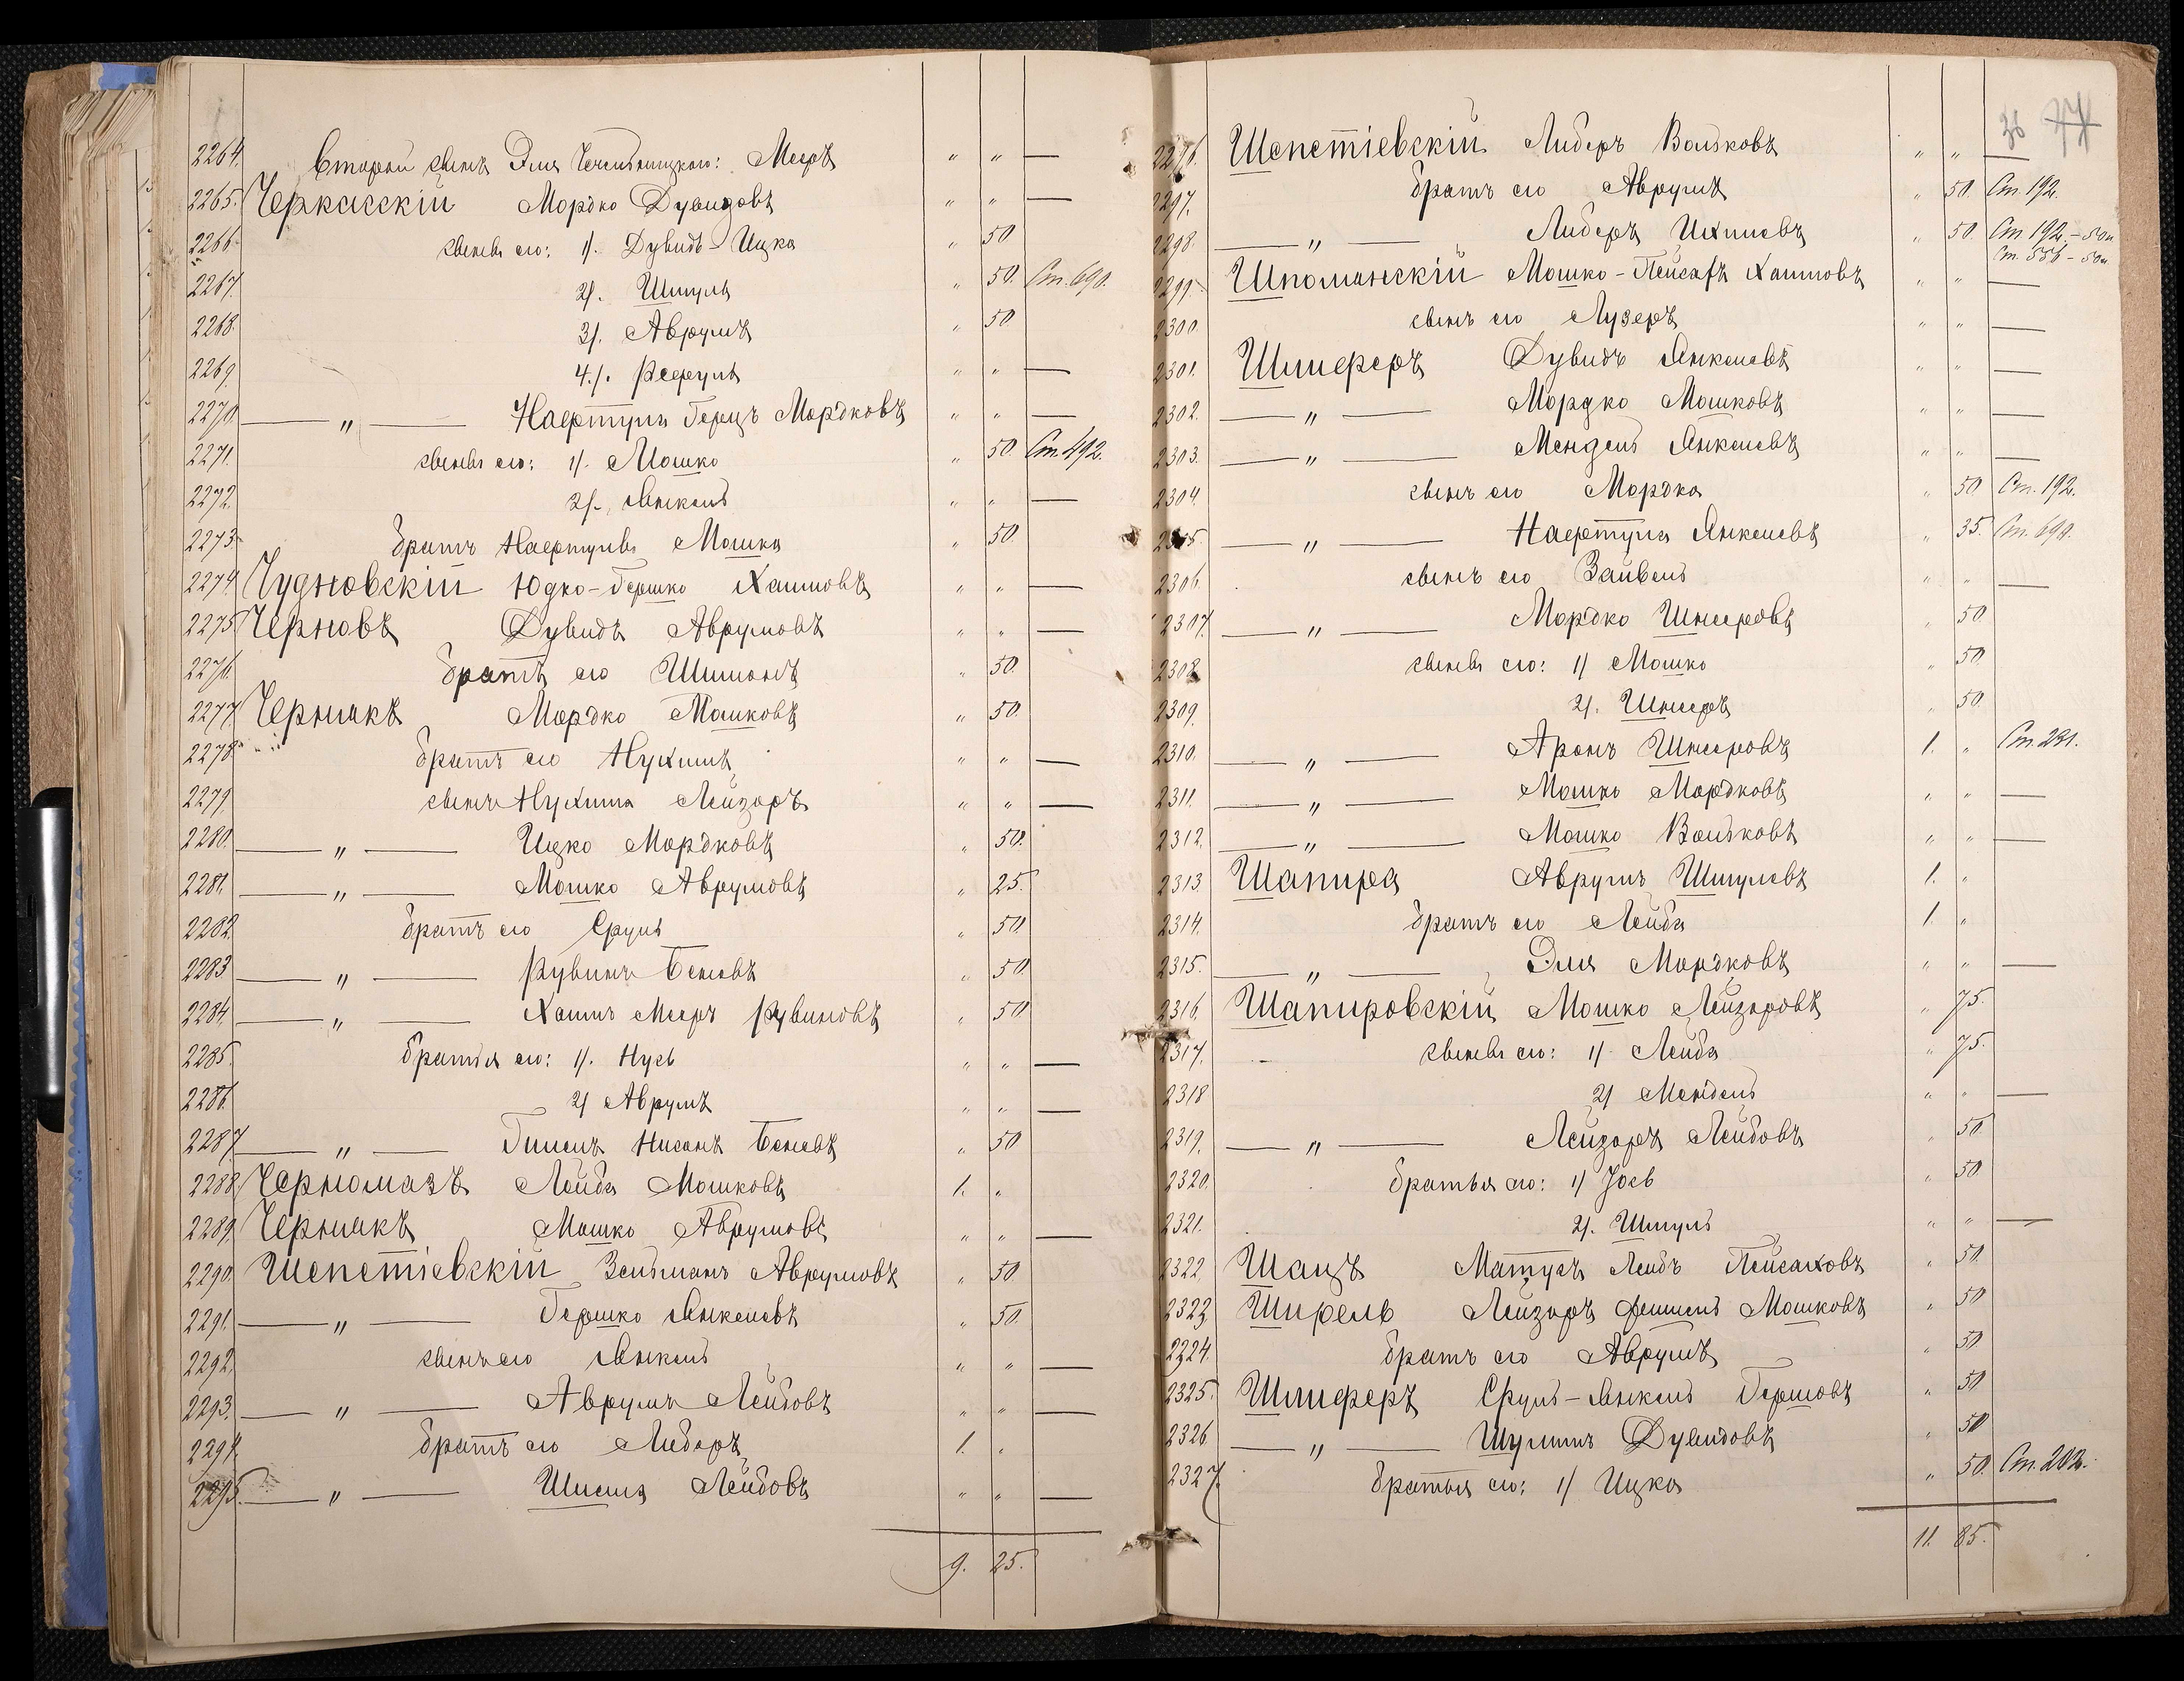 2264. Второй сынъ Эля Чечельницкаго: Мееръ " " —
2265. Черкасскій Мордко Дувидовъ " " —
2266. сыновья его: 1/. Дувидъ-Ицко " 50
2267. 2/. Шмуль " 50. Ст. 690.
2268. 3/. Аврумъ " 50
2269. 4./. Рефуль " " —
2270. —— " —— Нафтула Герцъ Мордковъ " " —
2271. сыновья его: 1/. Мошко " 50 Ст. 492.
2272. 2/. Янкель " " —
2273. братъ Нафтулы Мошко " 50
2274. Чудновскій Юдко-Гершко Хаимовъ " " —
2275. Черновъ Дувидъ Аврумовъ " " —
2276. братъ его Шимонъ " 50.
2277. Чернякъ Мордко Мошковъ " 50.
2278. братъ его Нухимъ " " —
2279 сынъ Нухима Лейзоръ " " —
2280. —— " —— Ицко Мордковъ " 50.
2281. —— " —— Мошко Аврумовъ " 25.
2282. братъ его Сруль " 50.
2283 —— " —— Рувинъ Беневъ " 50
2284. —— " —— Хаимъ Мееръ Рувиновъ " 50
2285. братья его: 1/. Нусь " " —
2286. 2/ Аврумъ " " —
2287. —— " —— Гимель Нисонъ Беневъ " 50
2288. Черномазъ Лейба Мошковъ 1. "
2289. Чернякъ Мошко Аврумовъ " " —
2290. Шепетіевскій Зельманъ Аврумовъ " 50
2291. —— " —— Гершко Янкелевъ " 50.
2292. сынъ его Янкель " " —
2293. —— " —— Аврумъ Лейбовъ " " —
2294. братъ его Либеръ 1. "
2295. —— " —— Лейбовъ " " —
9. 25.
36 77
2296. Шепетіевскій Либеръ Вольковъ " " —
2297. братъ его Аврумъ " 50. Ст. 192.
2298. —— " —— Либеръ Ихилевъ " 50. Ст. 192. – 50к
Ст. 556 – 50к.
2299. Шполянскій Мошко-Пейсахъ Хаимовъ " " —
2300. сынъ его Лузеръ " " —
2301. Шлиферъ Дувидъ Янкелевъ " " —
2302. —— " —— Мордко Мошковъ " " —
2303. —— " —— Мендель Янкелевъ " " —
2304. сынъ его Мордко " 50 Ст. 192.
2305. —— " —— Нафтула Янкелевъ " 35. Ст. 690.
2306. сынъ его Зайвель " " —
2307. —— " —— Мордко Шнееровъ " 50
2308. сыновья его: 1/ Мошко " 50
2309. 2/. Шнееръ " 50
2310. —— " —— Аронъ Шнееровъ 1. " Ст. 231.
2311. —— " —— Мошко Мордковъ " " —
2312. —— " —— Мошко Вольковъ " " —
2313. Шапира Аврумъ Шмулевъ 1. "
2314. братъ его Лейба 1 "
2315. —— " —— Эля Мордковъ " " —
2316. Шапировскій Мошко Лейзоровъ " 75.
2317. сыновья его: 1/ Лейба " 75.
2318 2/ Мендель " " —
2319. —— " —— Лейзоръ Лейбовъ " 50
2320. братья его: 1/ Іось " 50
2321. 2/. Шмуль " " —
2322. Шацъ Матусъ Лейбъ Пейсаховъ " 50.
2323 Ширель Лейзоръ Фишель Мошковъ " 50
2324. братъ его Аврумъ " 50
2325. Шлиферъ Сруль-Янкель Гершовъ " 50
2326. —— " —— Шулимъ Дувидовъ " 50
2327. братья его: 1/ Ицко " 50. Ст. 202.
11. 85.